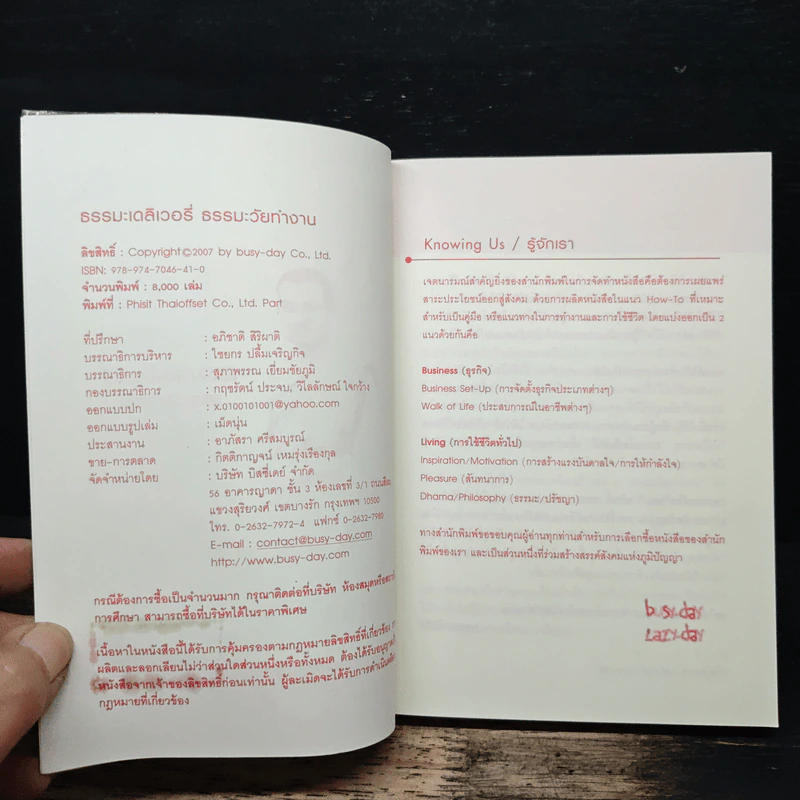 ธรรมะเดลิเวอรี่ ธรรมะวัยทำงาน
ลิขสิทธิ์ : Copyright©2007 by busy-day Co., Ltd.
ISBN: 978-974-7046-41-0
จำนวนพิมพ์ : 8,000 เล่ม
พิมพ์ที่ : Phisit Thaioffset Co., Ltd. Part
ที่ปรึกษา : อภิชาติ สิริผาติ
บรรณาธิการบริหาร : ไชยกร ปลื้มเจริญกิจ
บรรณาธิการ : สุภาพรรณ เยี่ยมชัยภูมิ
กองบรรณาธิการ : กฤชรัตน์ ประจบ, วิไลลักษณ์ ใจกว้าง
ออกแบบปก : x.0100101001@yahoo.com
ออกแบบรูปเล่ม : เม็ดนุ่น
ประสานงาน : อาภัสรา ศรีสมบูรณ์
ขาย-การตลาด : กิตติกาญจน์ เหมรุ่งเรืองกุล
จัดจำหน่ายโดย : บริษัท บิสซี่เดย์ จำกัด
56 อาคารญาดา ชั้น 3 ห้องเลขที่ 3/1 ถนนสีลม
แขวงสุริยวงศ์ เขตบางรัก กรุงเทพฯ 10500
โทร. 0-2632-7972-4 แฟกซ์ 0-2632-7980
E-mail : contact@busy-day.com
http://www.busy-day.com
กรณีต้องการซื้อเป็นจำนวนมาก กรุณาติดต่อที่บริษัท ห้องสมุดหรือ
การศึกษา สามารถซื้อที่บริษัทได้ในราคาพิเศษ
เนื้อหาในหนังสือนี้ได้รับการคุ้มครองตามกฎหมายลิขสิทธิ์ที่เกี่ยวข้อง
ผลิตและลอกเลียนไม่ว่าส่วนใดส่วนหนึ่งหรือทั้งหมด ต้องได้รับ
หนังสือจากเจ้าของลิขสิทธิ์ก่อนเท่านั้น ผู้ละเมิดจะได้รับการ
กฎหมายที่เกี่ยวข้อง
Knowing Us / รู้จักเรา
เจตนารมณ์สำคัญยิ่งของสำนักพิมพ์ในการจัดทำหนังสือคือต้องการเผยแพร่
สาระประโยชน์ออกสู่สังคม ด้วยการผลิตหนังสือในแนว How-To ที่เหมาะ
สำหรับเป็นคู่มือ หรือแนวทางในการทำงานและการใช้ชีวิต โดยแบ่งออกเป็น 2
แนวด้วยกันคือ
Business (ธุรกิจ)
Business Set-Up (การจัดตั้งธุรกิจประเภทต่างๆ)
Walk of Life (ประสบการณ์ในอาชีพต่างๆ)
Living (การใช้ชีวิตทั่วไป)
Inspiration/Motivation (การสร้างแรงบันดาลใจ/การให้กำลังใจ)
Pleasure (สันทนาการ)
Dhama/Philosophy (ธรรมะ/ปรัชญา)
ทางสำนักพิมพ์ขอขอบคุณผู้อ่านทุกท่านสำหรับการเลือกซื้อหนังสือของสำนัก
พิมพ์ของเรา และเป็นส่วนหนึ่งที่ร่วมสร้างสรรค์สังคมแห่งภูมิปัญญา
busy-day
LAZY-day